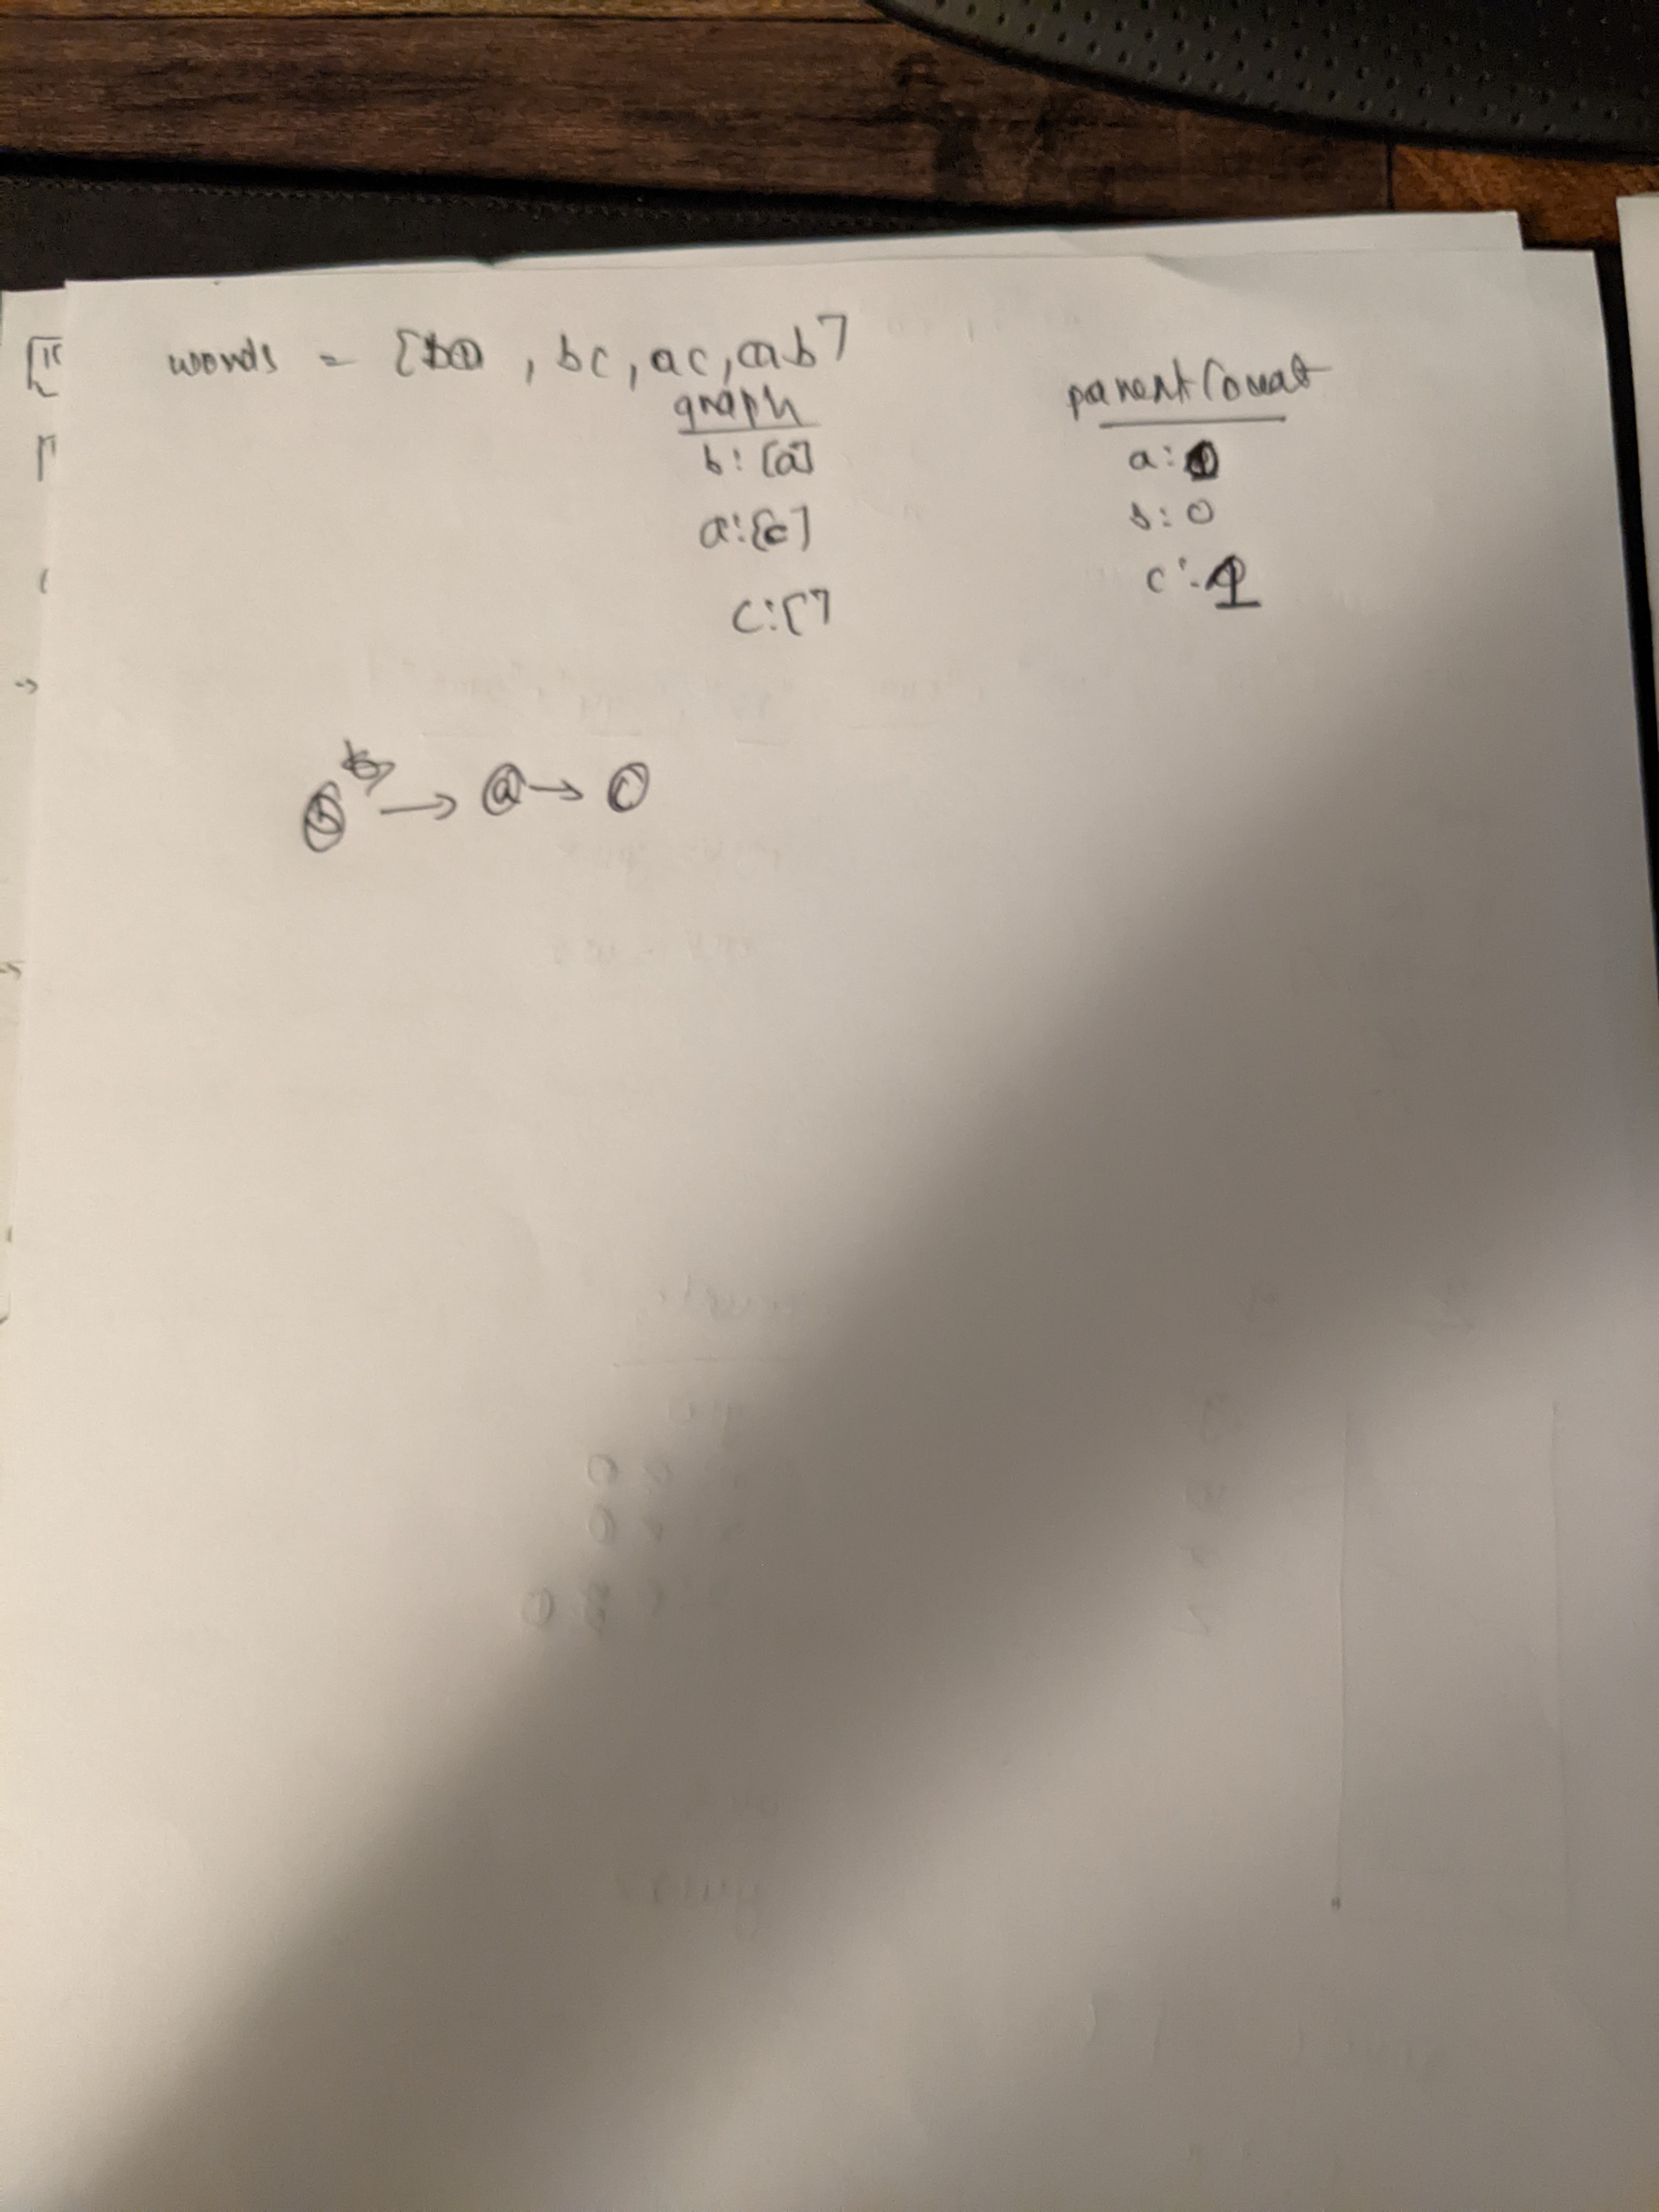 words = [ba, bc, ac, ab]
graph
b: [a]
a: [c]
c: []
parentCount
a: 1
b: 0
c: 1
b → a → c